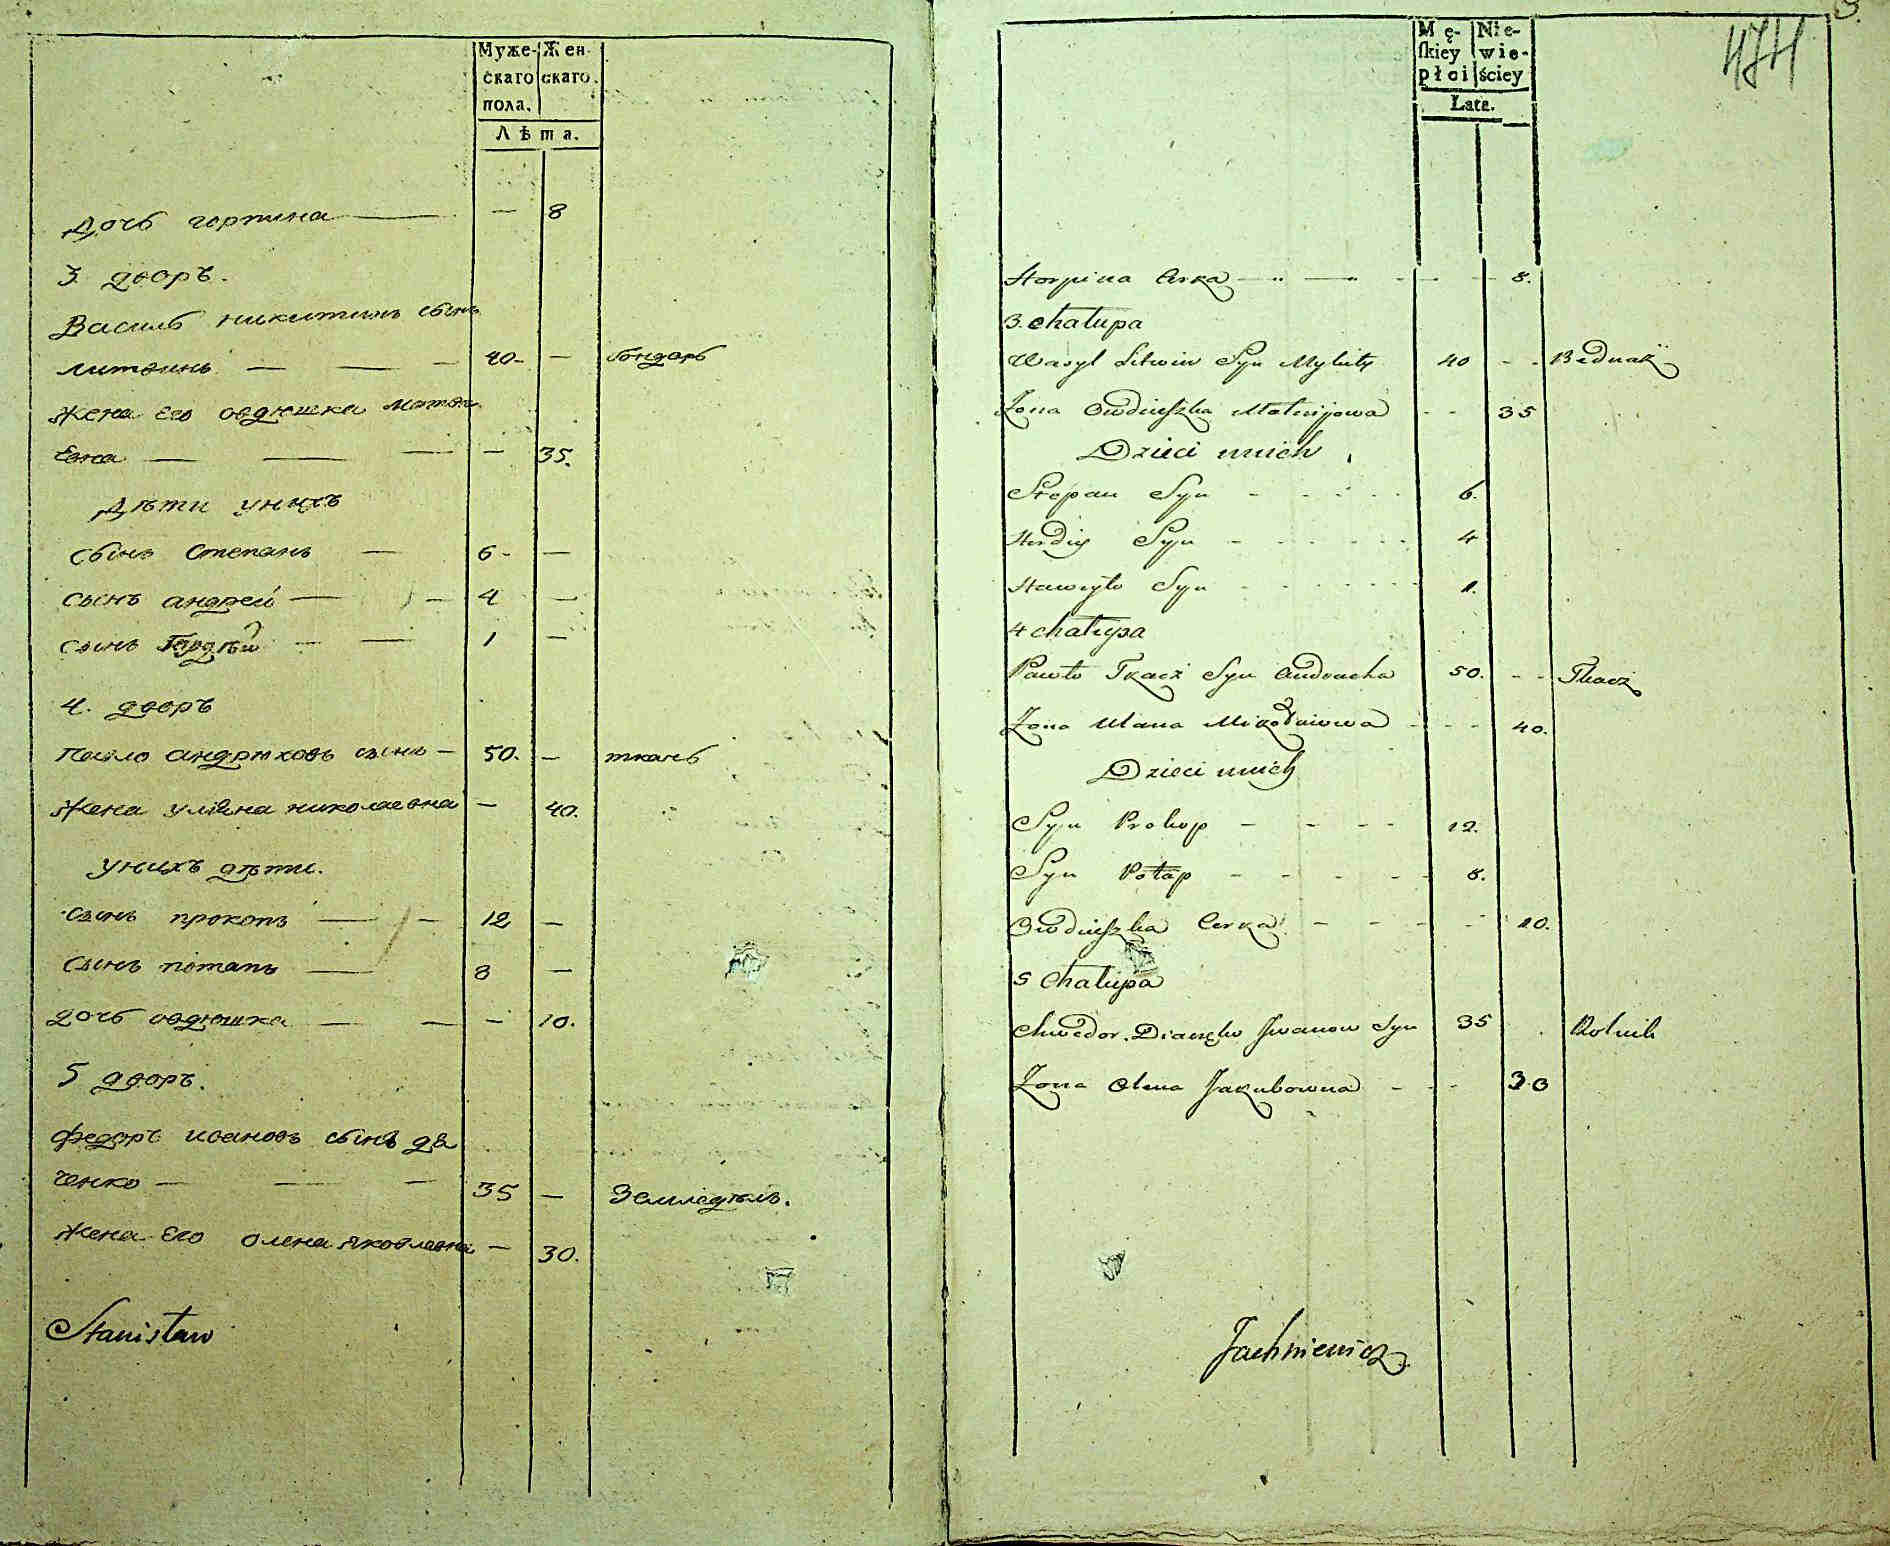 Муже- Жен-
скаго скаго.
пола.
Лѣта.
Дочь горпина — — 8
3 дворъ.
Василь никитинъ сынъ
литвинъ — — — 40 — бондарь
жена его овдюшка матвѣ
евна — — — — 35.
Дѣти унихъ
сынъ Степанъ — 6 —
сынъ андрей — — 4 —
сынъ Гордѣй — — 1 —
4. дворъ
Павло андрюховъ сынъ — 50. — ткачь
жена уліяна николаевна — 40.
унихъ дѣти.
сынъ прокопъ — — 12 —
сынъ потапъ — 8 —
дочь овдюшка — — — 10.
5 дворъ.
федоръ ивановъ сынъ дя
ченко — — — 35 — Земледѣлъ.
жена его олена яковлевна — 30.
Stanisław
474
Mę- Nie-
skiey wie-
płci ściey
Lata.
Horpina Cerka — — 8.
3. chałupa
Wasyl Litwin Syn Mykity 40 - - Bednarz
Żona Owdiuszka Matwijowa - - 35
Dzieci unich
Stepan Syn - - - - 6.
Hordiy Syn - - - - 4
Hawryło Syn - - - - 1.
4 chałupa
Pawło Tkacz Syn Andrucha 50. - - Tkacz
Żona Ulana Mikołaiowa - - - 40.
Dzieci unich
Syn Prokop - - - - 12.
Syn Potap - - - - - 8.
Owdiuszka Cerka - - - - 10.
5 Chałupa
Chwedor Diaczęko Jwanow Syn 35 . Rolnik
Żona Olena Jakubowna - - - 30
Jachniewicz